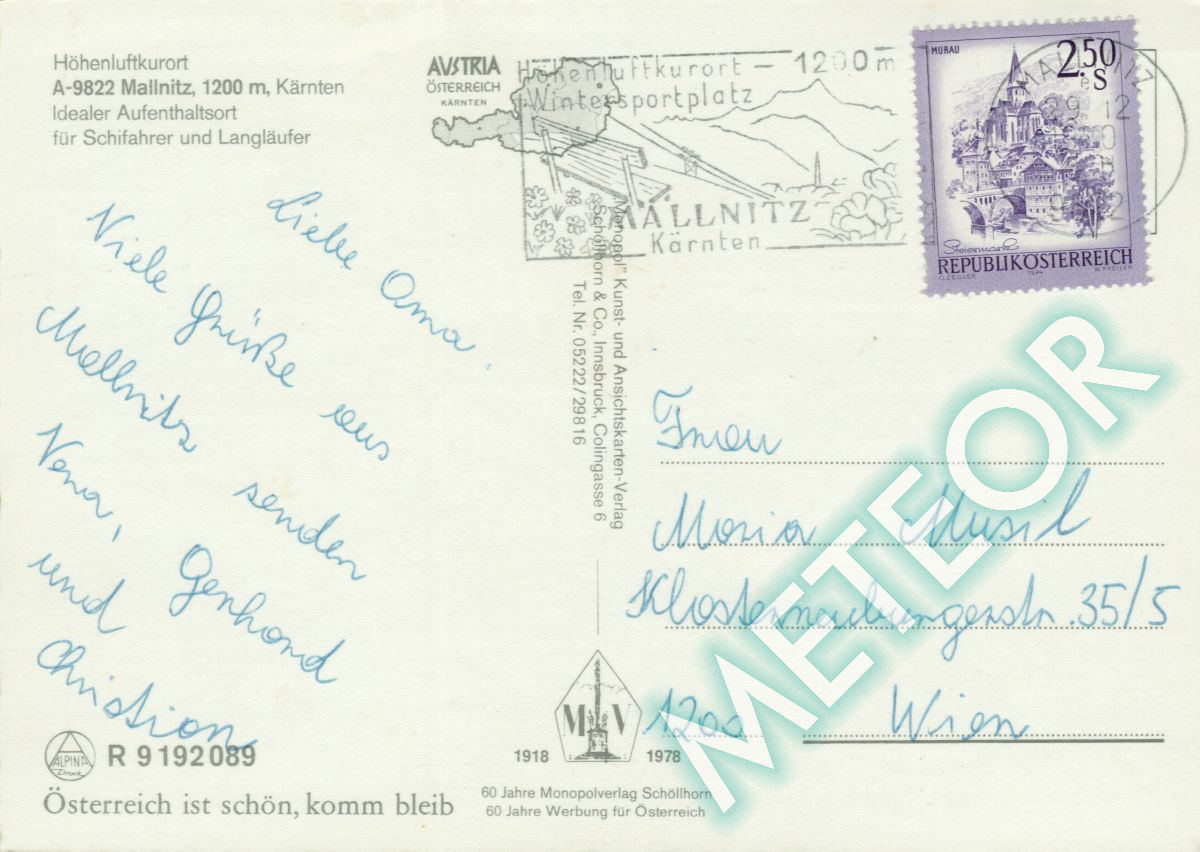 Höhenluftkurort
A-9822 Mallnitz, 1200 m, Kärnten
Idealer Aufenthaltsort
für Schifahrer und Langläufer
AVSTRIA
ÖSTERREICH
KÄRNTEN
Höhenluftkurort – 1200 m
Wintersportplatz
MALLNITZ
Kärnten
MALLNITZ
29. 12
MURAU
2.50
S
Steiermark
REPUBLIK ÖSTERREICH
O. ZEILLER
1974
W. PFEILER
Liebe Oma.
Viele Grüße aus
Mallnitz senden
Vera, Gerhard
und
Christian
"Monopol" Kunst- und Ansichtskarten-Verlag
Schöllhorn & Co., Innsbruck, Colingasse 6
Tel. Nr. 05222/29816
Frau
Maria Musil
Klosterneuburgerstr. 35/5
1200 Wien
METEOR
M V
1918 1978
60 Jahre Monopolverlag Schöllhorn
60 Jahre Werbung für Österreich
ALPINA
Druck
R 9192089
Österreich ist schön, komm bleib